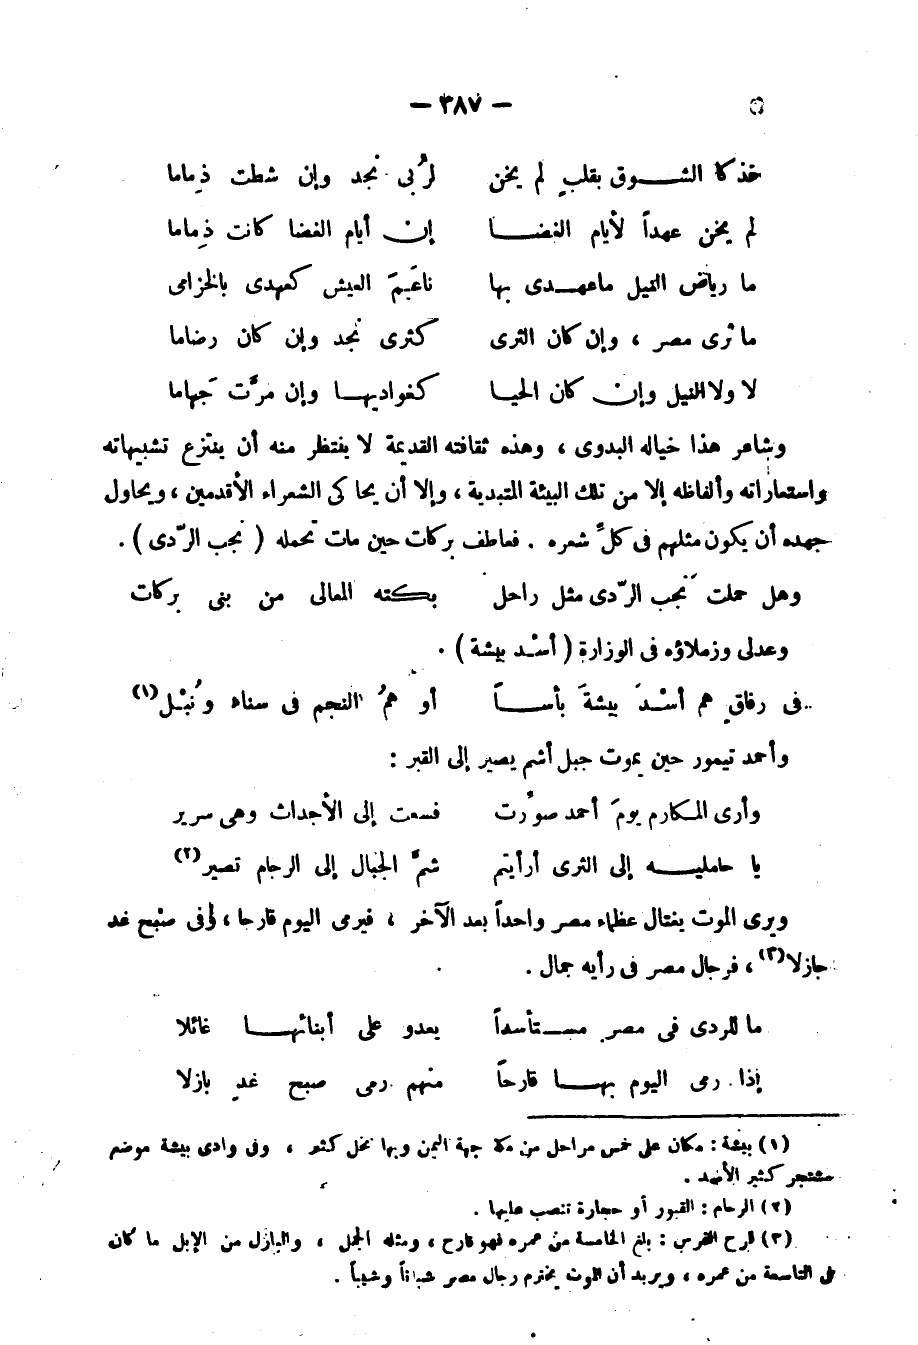 — ٣٨٧ —
خذ كا الشـــوق بقلبٍ لم يخن لرُبى نجد وإن شطت ذِماما
لم يخن عهداً لأيام الغضـــا إن أيام الغضا كانت ذِماما
ما رياض النيل ماعهـــدى بها ناعَمَ العيش كعهدى بالخزامى
ما ثرى مصر ، وإن كان الثرى كثرى نجد وإن كان رضاما
لا ولا النيل وإن كان الحيـا كغواديهـــا وإن مرَّت جَهاما
وشاعر هذا خياله البدوى ، وهذه ثقافته القديمة لا ينتظر منه أن ينتزع تشبيهاته
واستعاراته وألفاظه إلا من تلك البيئة المتبدية ، وإلا أن يحاكى الشعراء الأقدمين ، ويحاول
جهده أن يكون مثلهم فى كلِّ شعره . فعاطف بركات حين مات تحمله ( نجب الرّدى ) .
وهل حملت نجب الرّدى مثل راحل بكته المعالى من بنى بركات
وعدلى وزملاؤه فى الوزارة ( أسْد بيشة ) .
فى رفاقٍ هم أسْـدُ بيشةَ بأســـاً أو همُ النجم فى سناه ونُبْل(١)
وأحمد تيمور حين يموت جبل أشم يصير إلى القبر :
وأرى المكارم يومَ أحمد صوّرت فسعت إلى الأجداث وهى سرير
يا حامليـــه إلى الثرى أرأيتم شمَّ الجبال إلى الرجام تصير(٢)
ويرى الموت يغتال عظماء مصر واحداً بعد الآخر ، فيرمى اليوم قارحا ، وفى صبْح غد
بازلا(٣) ، فرجال مصر فى رأيه جمال .
ما للردى فى مصر مستأسداً يعدو على أبنائهـــا غائلا
إذا رمى اليوم بهـــا قارحاً منهم رمى صبح غدٍ بازلا
(١) بيشة : مكان على خمس مراحل من مكة جهة اليمن وبها نخل كثير ، وفى وادى بيشة موضع
مشجر كثير الأسد .
(٢) الرجام : القبور أو حجارة تنصب عليها .
(٣) قرح الفرس : بلغ الخامسة من عمره فهو قارح ، ومثله الجمل ، والبازل من الإبل ما كان
فى التاسعة من عمره ، ويريد أن الموت يخترم رجال مصر شباناً وشيباً .